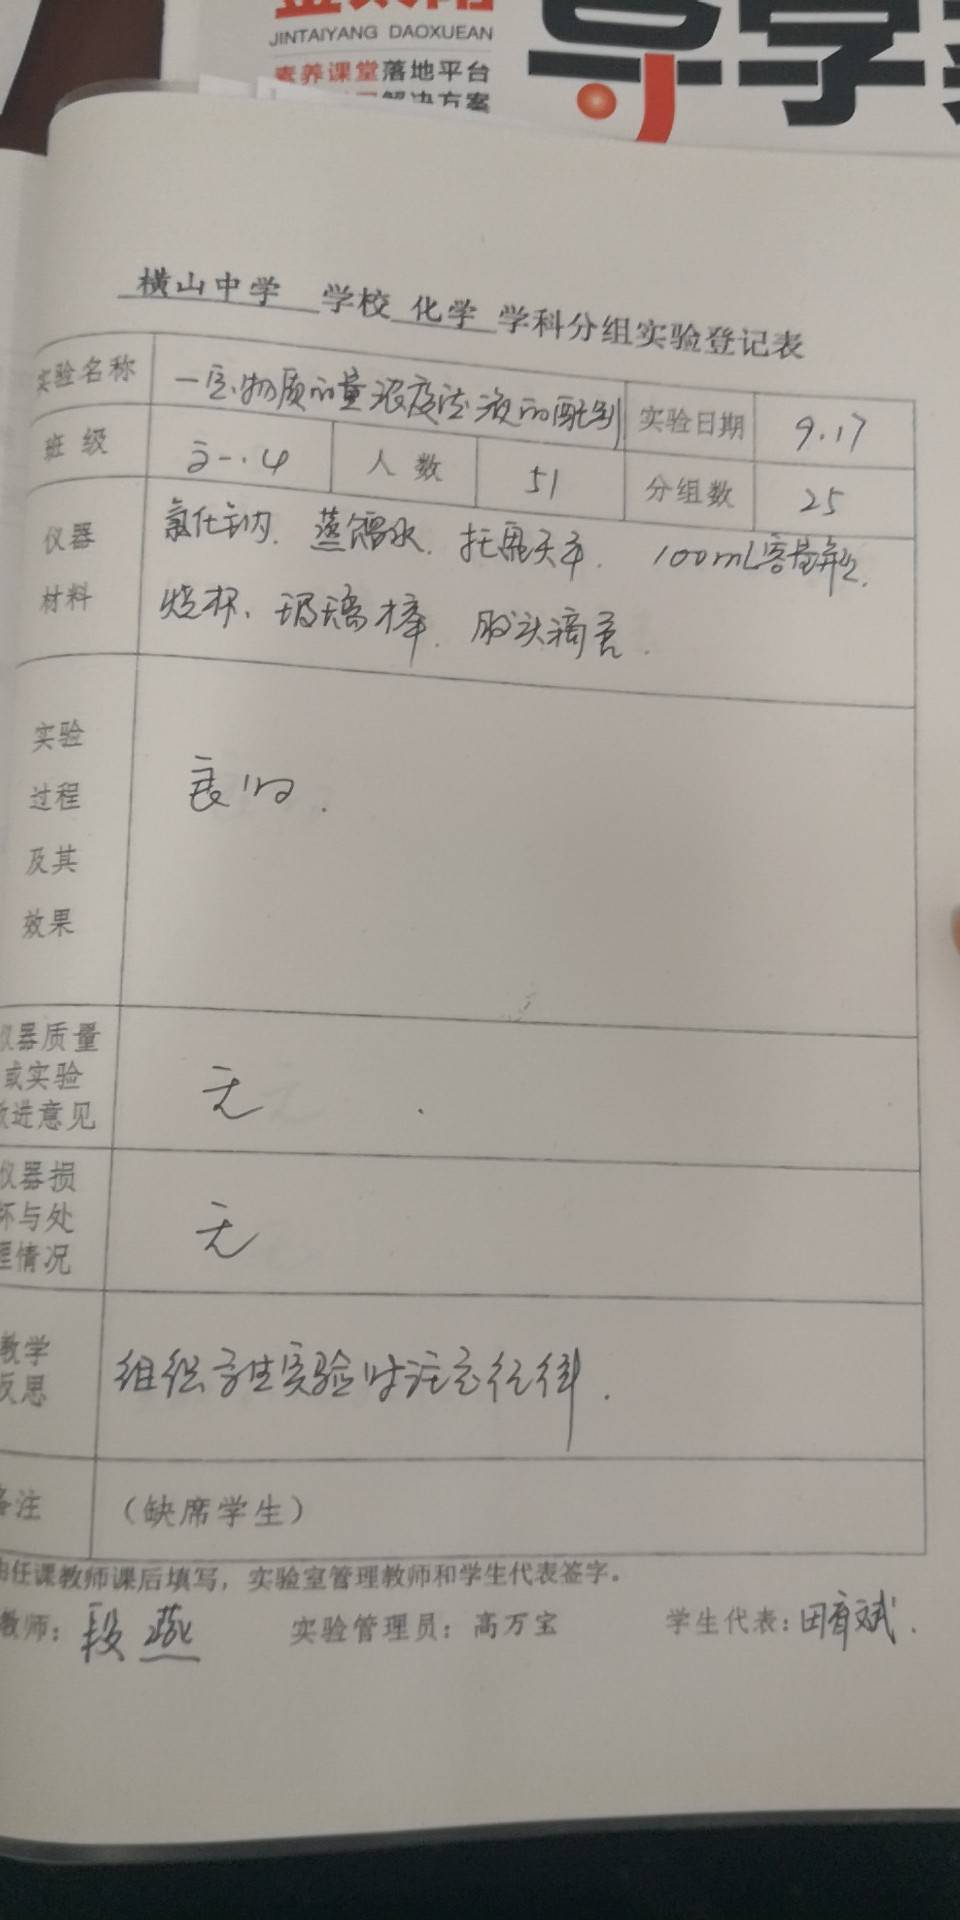 JINTAIYANG DAOXUEAN
素养课堂落地平台
解决方案
导学
横山中学 学校 化学 学科分组实验登记表
实验名称 一定物质的量浓度溶液的配制 实验日期 9.17
班级 高一.4 人数 51 分组数 25
仪器 氯化钠、蒸馏水、托盘天平、100mL容量瓶、
材料 烧杯、玻璃棒、胶头滴管.
实验
过程 良好.
及其
效果
仪器质量
或实验 无
改进意见
仪器损
坏与处 无
理情况
教学 组织学生实验时注意纪律.
反思
备注 （缺席学生）
由任课教师课后填写，实验室管理教师和学生代表签字。
教师：段燕 实验管理员：高万宝 学生代表：田育斌.